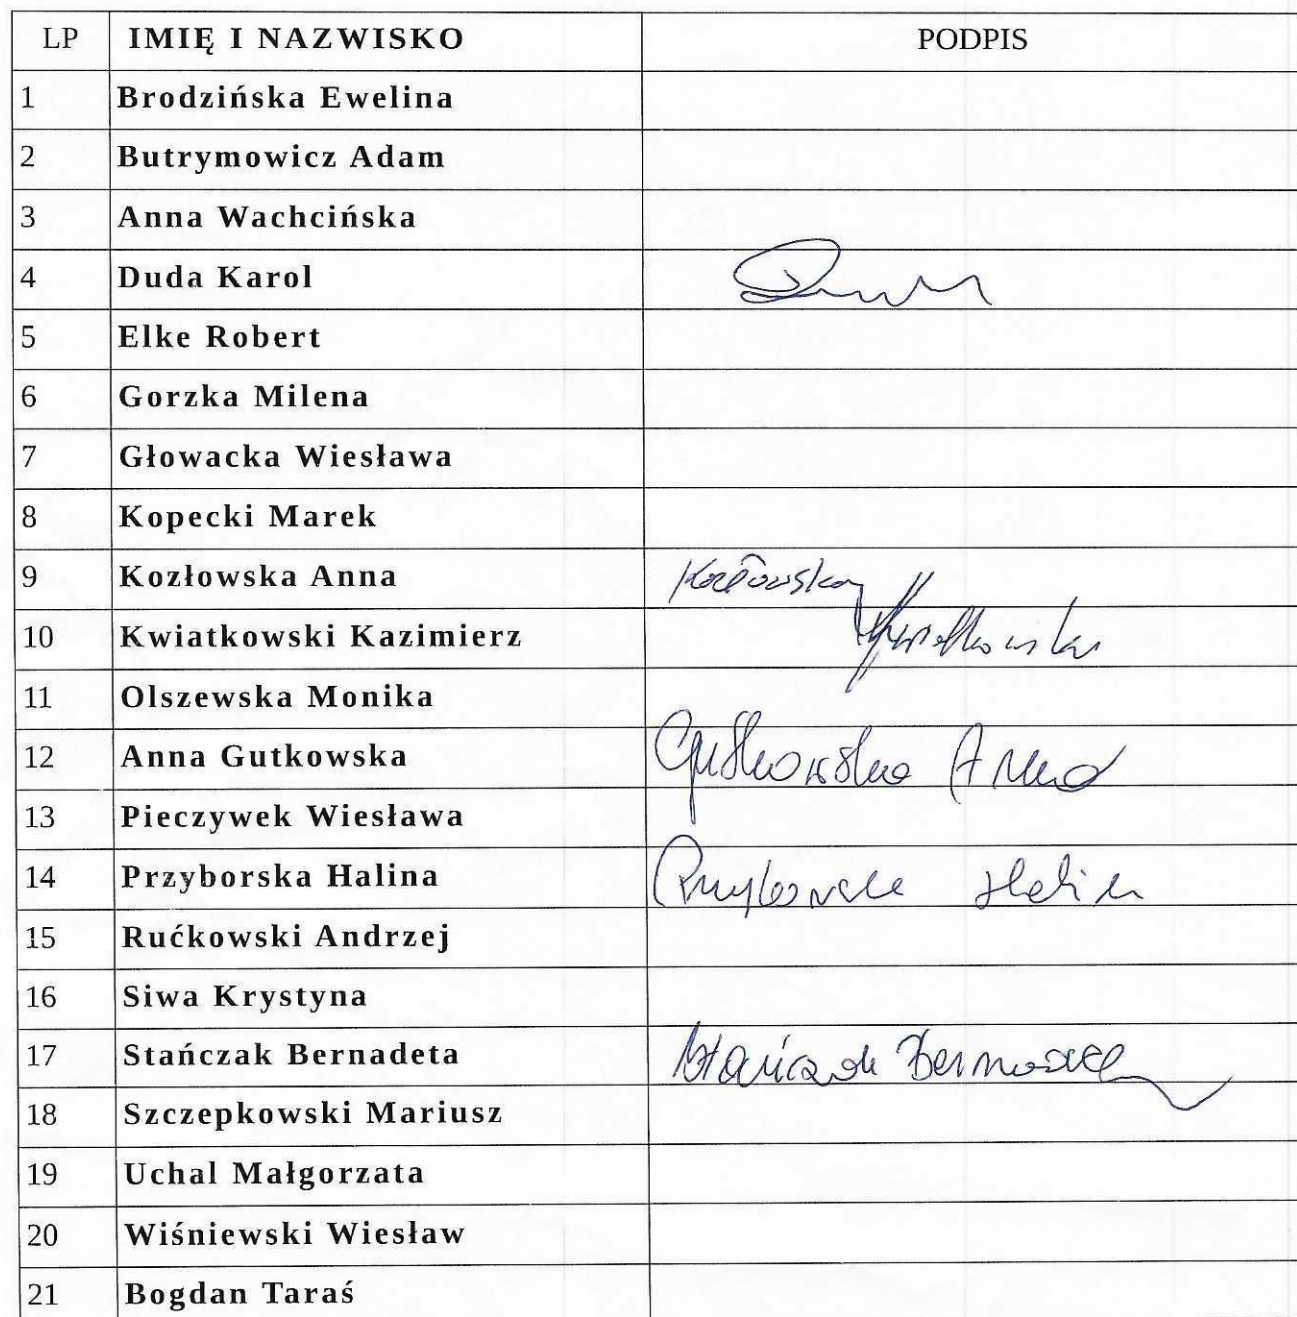 LP IMIĘ I NAZWISKO PODPIS
1 Brodzińska Ewelina
2 Butrymowicz Adam
3 Anna Wachcińska
4 Duda Karol
5 Elke Robert
6 Gorzka Milena
7 Głowacka Wiesława
8 Kopecki Marek
9 Kozłowska Anna Kozłowska
10 Kwiatkowski Kazimierz Kwiatkowski
11 Olszewska Monika
12 Anna Gutkowska Gutkowska Anna
13 Pieczywek Wiesława
14 Przyborska Halina Przyborska Halina
15 Rućkowski Andrzej
16 Siwa Krystyna
17 Stańczak Bernadeta Stańczak Bernadeta
18 Szczepkowski Mariusz
19 Uchal Małgorzata
20 Wiśniewski Wiesław
21 Bogdan Taraś